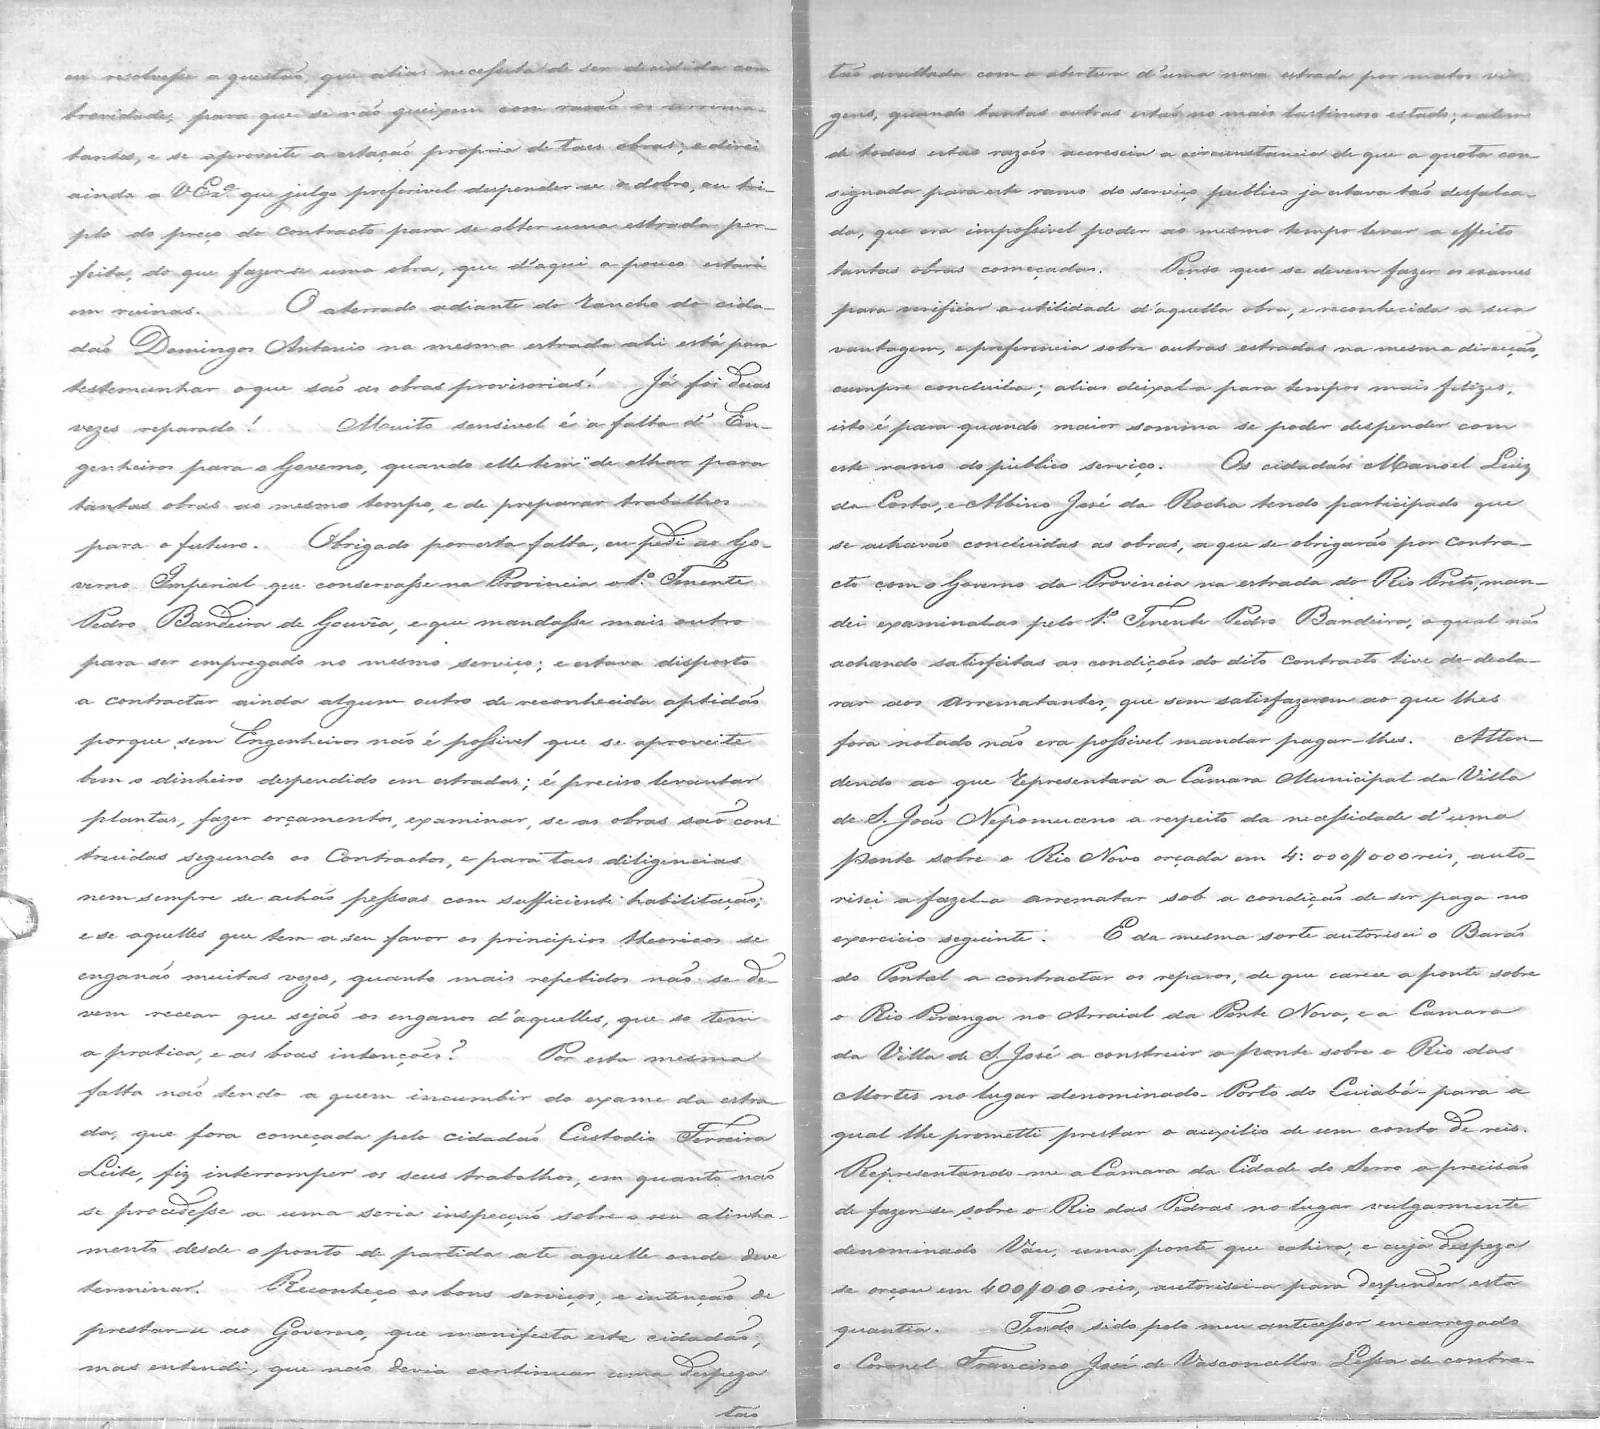 eu resolvesse a questão, que alias necessita de ser decidida com
brevidade, para que se não queixem com rasão os arrema-
tantes, e se aproveite a estação propria de taes obras; e direi
ainda a V Exª que julgo preferivel despender-se o dobro, ou tri-
plo do preço do contracto para se obter uma estrada per-
feita, do que fazer-se uma obra, que d'aqui a pouco estará
em ruinas. O aterrado adiante do Rancho do cida-
dão Domingos Antonio na mesma estrada ahi está para
testemunhar o que são as obras provisorias! Já foi duas
vezes reparado! Muito sensivel é a falta d' En-
genheiros para o Governo, quando elle tem de olhar para
tantas obras ao mesmo tempo, e de preparar trabalhos
para o futuro. Obrigado por esta falta, eu pedi ao Go-
verno Imperial que conservasse na Provincia o 1.º Tenente
Pedro Bandeira de Gouvêa, e que mandasse mais outro
para ser empregado no mesmo serviço; e estava disposto
a contractar ainda algum outro de reconhecida aptidão
porque sem Engenheiros não é possivel que se aproveite
bem o dinheiro despendido em estradas; é preciso levantar
plantas, fazer orçamentos, examinar, se as obras são cons
truidas segundo os Contractos, e para taes diligencias
nem sempre se achão pessoas com sufficiente habilitação;
e se aquelles que tem a seu favor os principios theoricos se
enganão muitas vezes, quanto mais repetidos não se de-
vem recear que sejão os enganos d'aquelles, que só tem
a pratica, e as boas intenções? Por esta mesma
falta não tendo a quem incumbir do exame da estra
da, que fora começada pelo cidadão Custodio Ferreira
Leite, fiz interromper os seus trabalhos, em quanto não
se procedesse a uma seria inspecção sobre o seu alinha-
mento desde o ponto de partida até aquelle onde deve
terminar. Reconheço os bons serviços, e intenção de
prestar-se ao Governo, que manifesta este cidadão;
mas entendi, que não devia continuar uma despeza
tão
tão avultada com a abertura d'uma nova estrada por matos vir
gens, quando tantas outras estão no mais lastimoso estado; e alem
de todas estas razões accrescia a circunstancia de que a quota con
signada para este ramo do serviço publico já estava tão desfalca-
da, que era impossivel poder ao mesmo tempo levar a effeito
tantas obras começadas. Penso que se devem fazer os exames
para verificar a utilidade d'aquella obra, e reconhecida a sua
vantagem, e preferencia sobre outras estradas na mesma direcção,
cumpre concluila; alias deixal-a para tempos mais felizes,
isto é para quando maior somma se poder despender com
este ramo do publico serviço. Os cidadãos Manoel Luiz
da Costa, e Albino José da Rocha tendo participado que
se achavão concluidas as obras, a que se obrigarão por contra-
cto com o Governo da Provincia na estrada do Rio Preto, man-
dei examinalas pelo 1.º Tenente Pedro Bandeira, o qual não
achando satisfeitas as condições do dito contracto tive de decla-
rar aos Arrematantes, que sem satisfazerem ao que lhes
fora notado não era possivel mandar pagar-lhes. Atten-
dendo ao que Representára a Camara Municipal da Villa
de S. João Nepomuceno a respeito da necessidade d'uma
ponte sobre o Rio Novo orçada em 4:000//000 reis, auto-
risei a fazel-a arrematar sob a condição de ser paga no
exercicio seguinte. E da mesma sorte autorisei o Barão
do Pontal a contractar os reparos, de que carece a ponte sobre
o Rio Piranga no Arraial da Ponte Nova, e a Camara
da Villa de S. José a construir a ponte sobre o Rio das
Mortes no lugar denominado - Porto do Cuiabá - para a
qual lhe prometti prestar o auxilio de um conto de reis.
Representando-me a Camara da Cidade do Serro a precisão
de fazer-se sobre o Rio das Pedras no lugar vulgarmente
denominado Váu, uma ponte que cahira, e cuja despeza
se orçou em 400//000 reis, autorisei-a para despender esta
quantia. Tendo sido pelo meu antecessor encarregado
o Coronel Francisco José de Vasconcellos Lessa de contra-